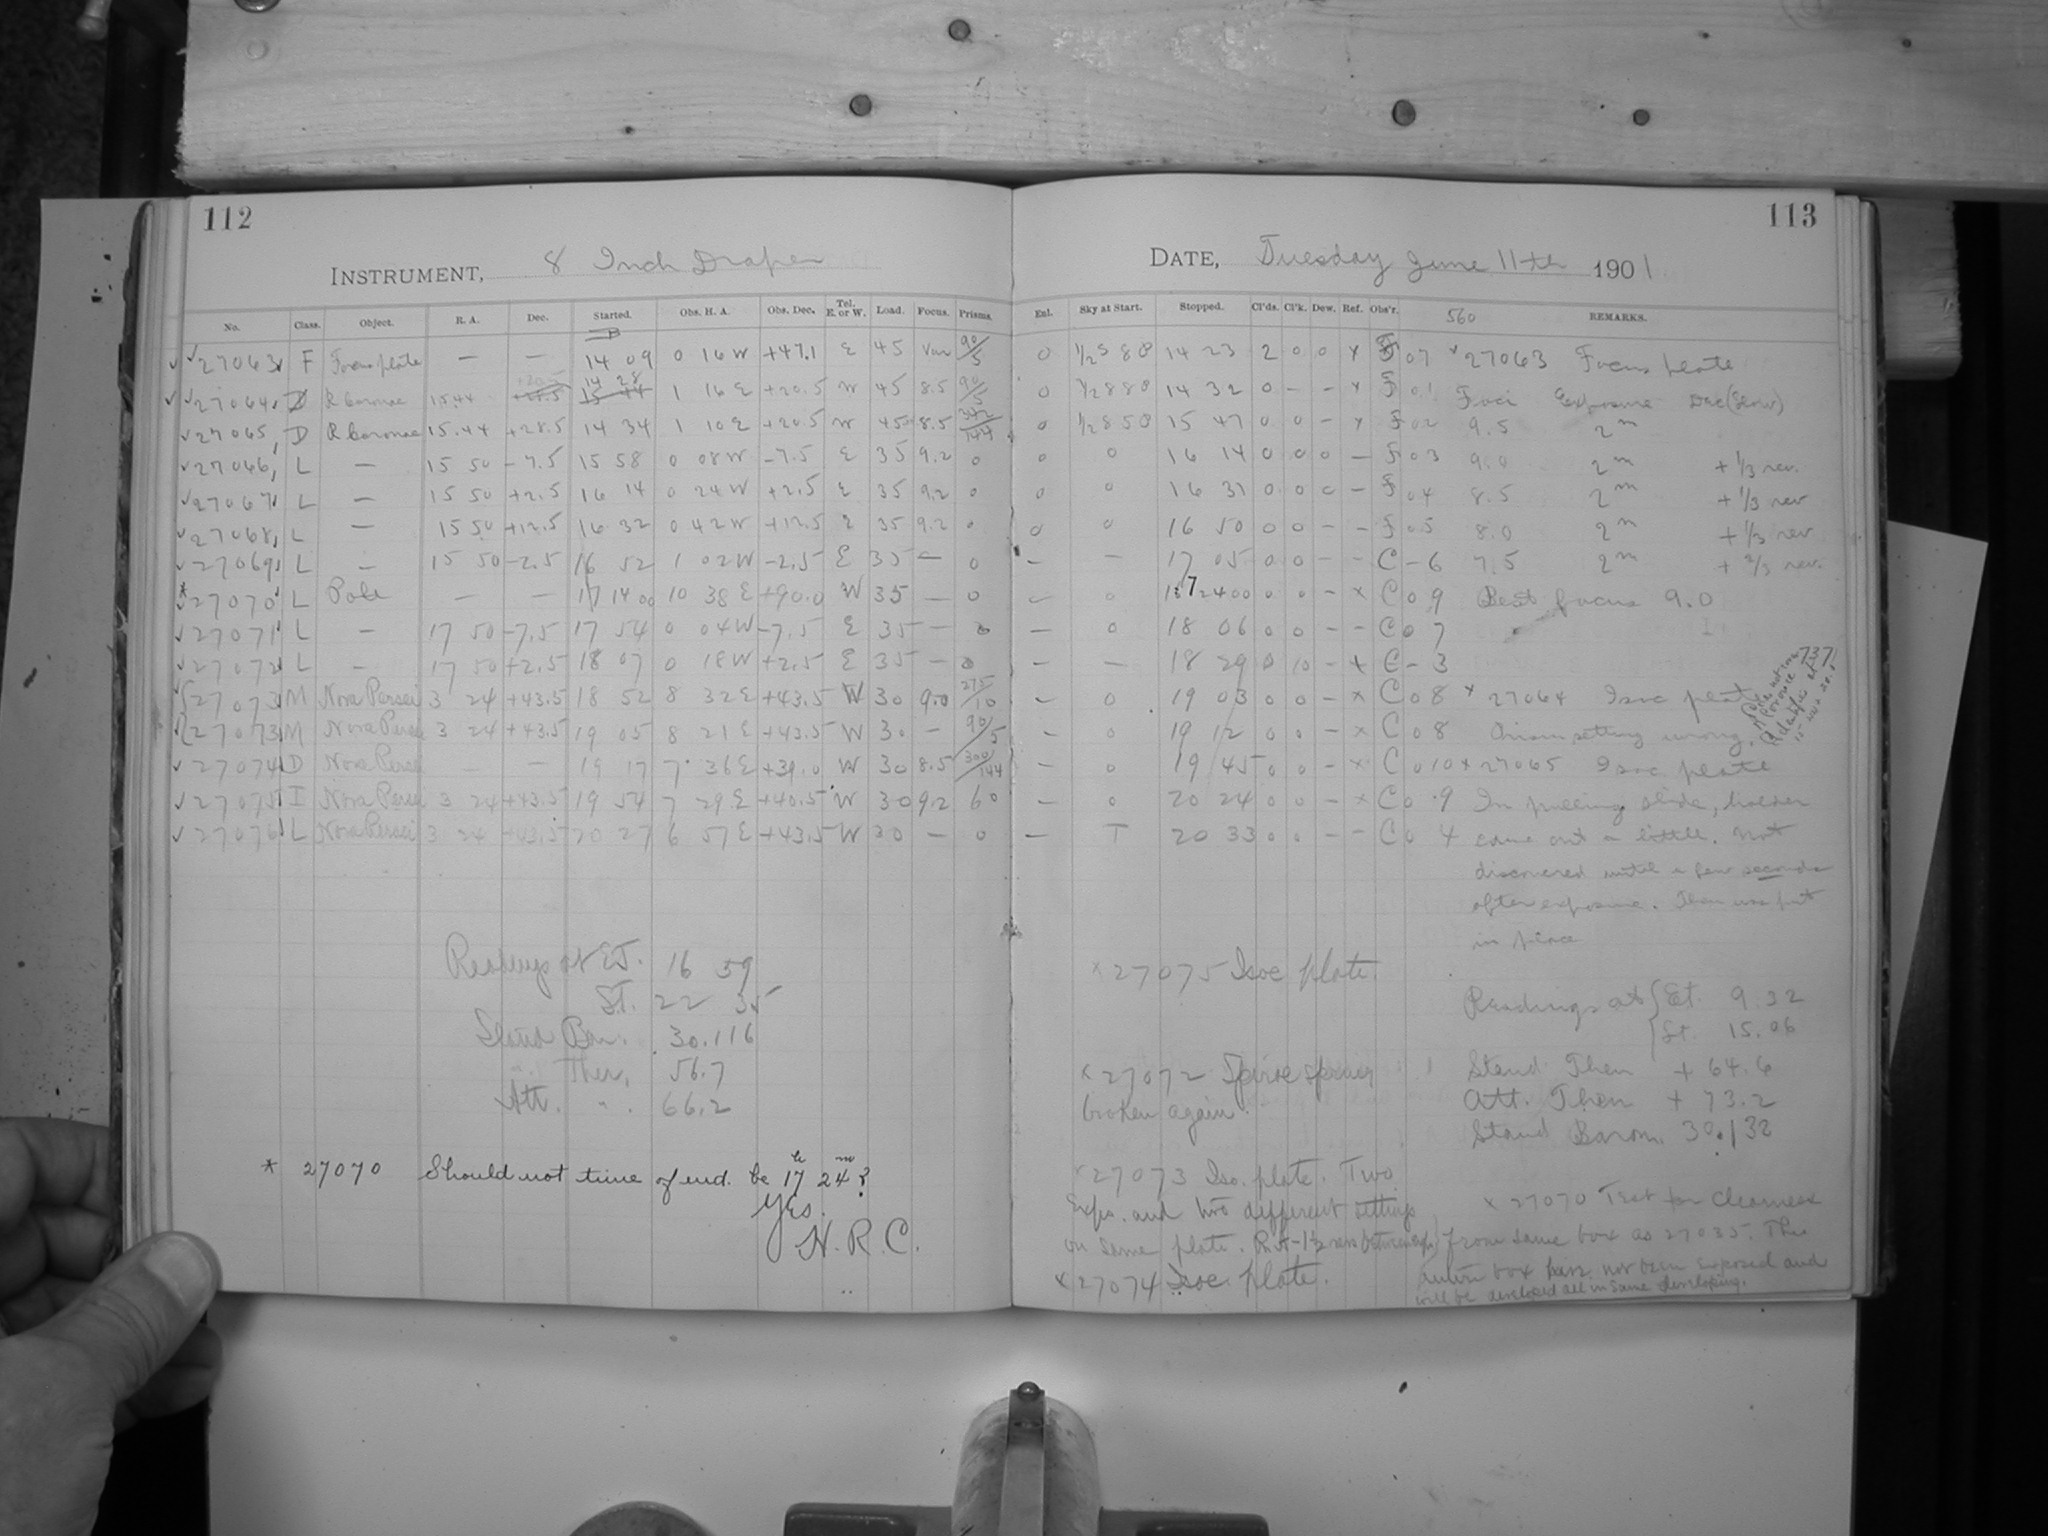 112
INSTRUMENT, 8 Inch Draper
No. Class. Object. R. A. Dec. Started. Obs. H. A. Obs. Dec. Tel. E. or W. Load. Focus. Prisms.
27063 F Focus plate — — 14 09 0 16 W +47.1 E 45 Var 90/5
27064 R Coronae 15.44 14 28 1 16 E +20.5 W 45 8.5 90/5
27065 D R Coronae 15.44 +28.5 14 34 1 10 E +20.5 W 45 8.5
27066 L — 15 50 -7.5 15 58 0 08 W -7.5 E 35 9.2 0
27067 L — 15 50 +2.5 16 14 0 24 W +2.5 E 35 9.2 0
27068 L — 15 50 +12.5 16 32 0 42 W +12.5 E 35 9.2 0
27069 L — 15 50 -2.5 16 52 1 02 W -2.5 E 35 — 0
* 27070 L Pole — — 17 14 00 10 38 E +90.0 W 35 — 0
27071 L — 17 50 -7.5 17 54 0 04 W -7.5 E 35 — 0
27072 L — 17 50 +2.5 18 07 0 18 W +2.5 E 35 — 0
27073 M Nova Persei 3 24 +43.5 18 52 8 32 E +43.5 W 30 9.0 275/10
27073 M Nova Persei 3 24 +43.5 19 05 8 21 E +43.5 W 30 — 90/5
27074 D Nova Persei — — 19 17 7 36 E +39.0 W 30 8.5 300/144
27075 I Nova Persei 3 24 +43.5 19 54 7 29 E +40.5 W 30 9.2 60
27076 L Nova Persei 3 24 +43.5 20 27 6 57 E +43.5 W 30 — 0
Readings at ET. 16 59
ST. 22 35
Stand Bar. 30.116
" Ther. 56.7
Att. " 66.2
* 27070 Should not time of end. be 17h 24m?
Yes.
H. R. C.
113
DATE, Tuesday June 11th 1901
Enl. Sky at Start. Stopped. Cl'ds. Cl'k. Dew. Ref. Obs'r. 560 REMARKS.
0 1/2 S 8 8 14 23 2 0 0 x F 07 x 27063 Focus plate
0 1/2 8 8 8 14 32 0 — — x F 01 Foci Exposure Dec (Screw)
0 1/2 8 5 8 15 47 0 0 — x F 02 9.5 2m
0 0 16 14 0 0 0 — F 03 9.0 2m + 1/3 rev.
0 0 16 31 0 0 0 — F 04 8.5 2m + 1/3 rev
0 0 16 50 0 0 — — F 05 8.0 2m + 1/3 rev
— — 17 05 0 0 — — C — 6 7.5 2m + 2/3 rev.
— 0 17 24 00 0 0 — x C 0 9 Best focus 9.0
— 0 18 06 0 0 — — C 0 7
— — 18 29 0 10 — x C — 3
— 0 19 03 0 0 — x C 0 8 x 27064 Isoc plate
— 0 19 12 0 0 — x C 0 8 Prism setting wrong.
— 0 19 45 0 0 — x C 0 10 x 27065 Isoc plate
— 0 20 24 0 0 — x C 0 9 In pulling slide, holder
— T 20 33 0 0 — — C 0 4 came out a little. Not
discovered until a few seconds
after exposure. Then was put
in place
x 27075 Isoc plate.
Readings at { Et. 9.32
St. 15.06
Stand Ther + 64.6
Att. Ther + 73.2
Stand Barom. 30.132
x 27072 Spring
broken again.
x 27073 Iso. plate. Two
Expo. and two different settings
on same plate.
x 27074 Isoc. plate.
x 27070 Test for Clearness
from same box as 27035. This
entire box have not been exposed and
will be developed all in same developing.